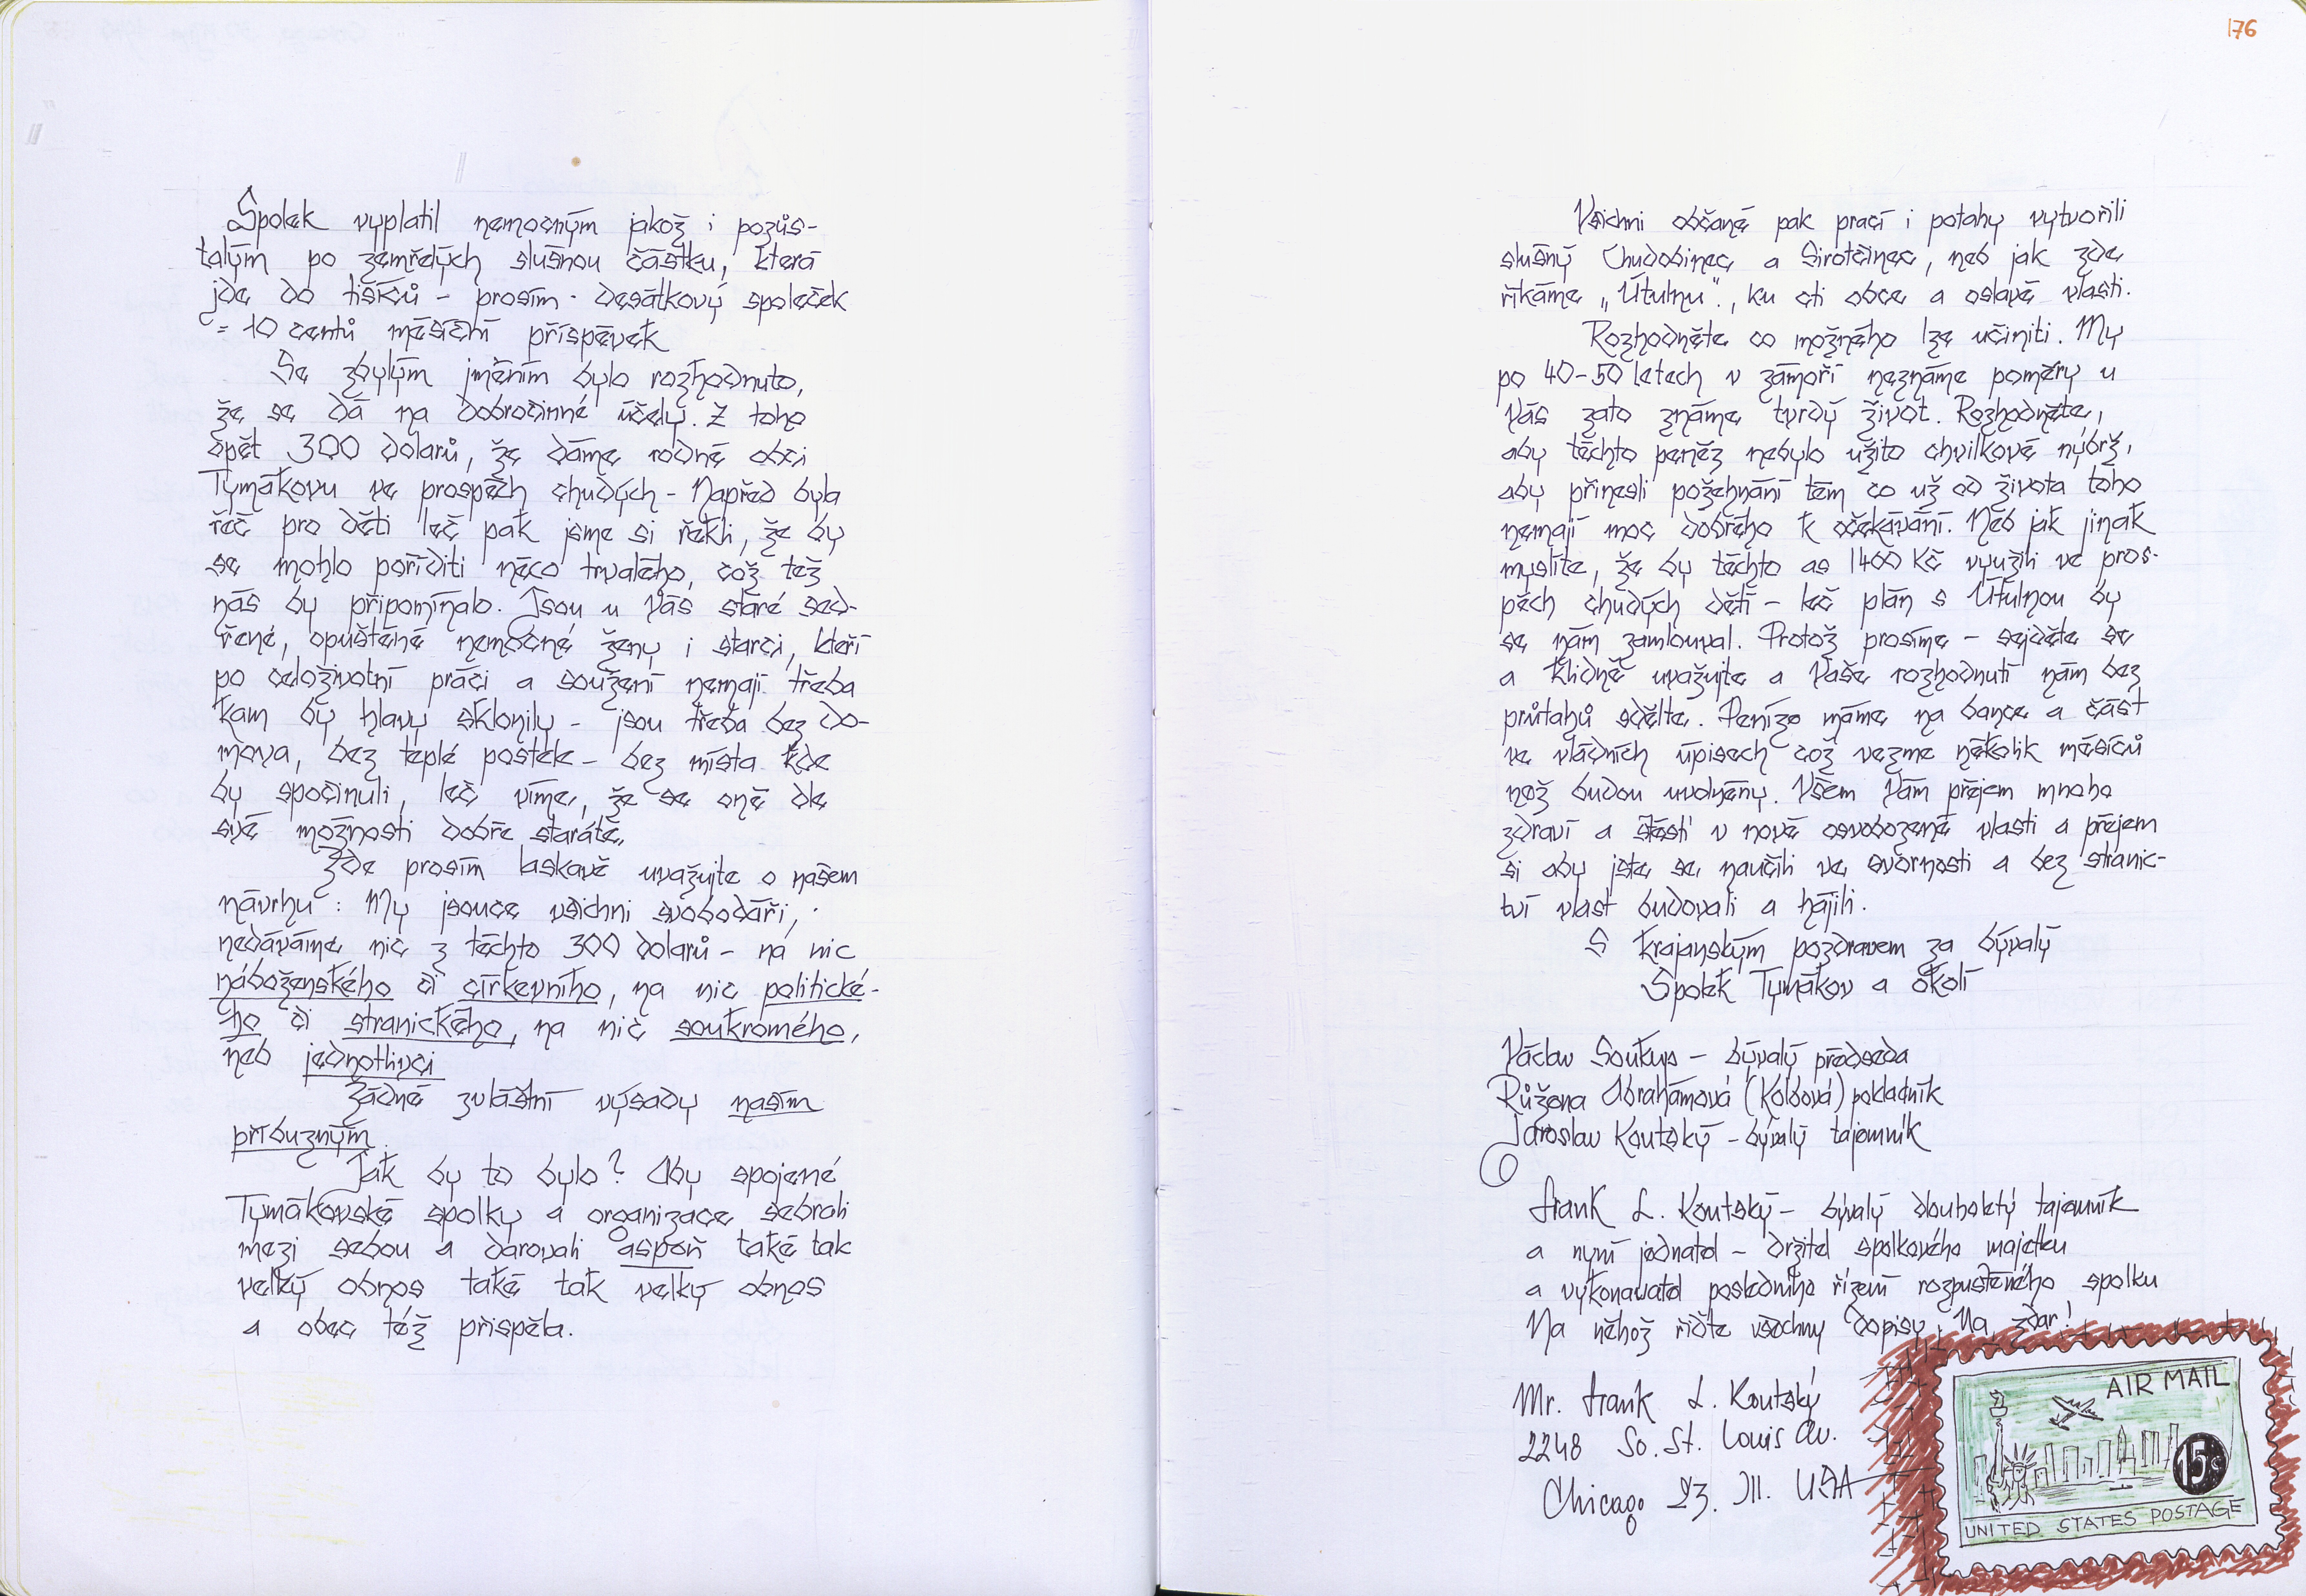 Spolek vyplatil nemocným jakož i pozůs-
talým po zemřelých slušnou částku, která
jde do tisíců - prosím - desátkový společek
= 10 centů měsíční příspěvek
Se zbylým jměním bylo rozhodnuto,
že se dá na dobročinné účely. Z toho
opět 300 dolarů, že dáme rodné obci
Tymákovu ve prospěch chudých - Napřed byla
řeč pro děti leč pak jsme si řekli, že by
se mohlo poříditi něco trvalého, což též
nás by připomínalo. Jsou u Vás staré sed-
řené, opuštěné nemocné ženy i starci, kteří
po celoživotní práci a soužení nemají třeba
kam by hlavy sklonily - jsou třeba bez do-
mova, bez teplé postele - bez místa kde
by spočinuli, leč víme, že se oně dle
své možnosti dobře staráte.
Zde prosím laskavě uvažujte o našem
návrhu: My jsouce všichni svobodáři,
nedáváme nic z těchto 300 dolarů - na nic
náboženského či církevního, na nic politické-
ho či stranického, na nic soukromého,
neb jednotlivci
Žádné zvláštní výsady našim
příbuzným.
Jak by to bylo? Aby spojené
Tymákovské spolky a organizace sebrali
mezi sebou a darovali aspoň také tak
velký obnos také tak velký obnos
a obec též přispěla.
176
Všichni občané pak prací i potahy vytvořili
slušný Chudobinec a Sirotčinec, neb jak zde
říkáme „Útulnu", ku cti obce a oslavě vlasti.
Rozhodněte co možného lze učiniti. My
po 40-50 letech v zámoří neznáme poměry u
Vás zato známe tvrdý život. Rozhodněte,
aby těchto peněz nebylo užito chvilkově nýbrž,
aby přinesli požehnání těm co už od života toho
nemají moc dobřého k očekávání. Neb jak jinak
myslíte, že by těchto as 1400 Kč využili ve pros-
pěch chudých dětí - leč plán s Útulnou by
se nám zamlouval. Protož prosíme - sejděte se
a klidně uvažujte a Vaše rozhodnutí nám bez
průtahů sdělte. Peníze máme na bance a část
ve vládních úpisech což vezme několik měsíců
než budou uvolněny. Všem Vám přejem mnoho
zdraví a štěstí v nově osvobozené vlasti a přejem
si aby jste se naučili ve svornosti a bez stranic-
tví vlast budovali a hájili.
S krajanským pozdravem za bývalý
Spolek Tymákov a okolí
Václav Soukup - bývalý předseda
Růžena Abrahámová (Kolbová) pokladník
Jaroslav Koutský - bývalý tajemník
Frank L. Koutský - bývalý dlouholetý tajemník
a nyní jednatel - držitel spolkového majetku
a vykonavatel posledního řízení rozpustěného spolku
Na něhož řiďte všechny dopisy. Na zdar!
Mr. Frank L. Koutský
2248 So. St. Louis Av.
Chicago 23. Ill. USA
AIR MAIL
15c
UNITED STATES POSTAGE